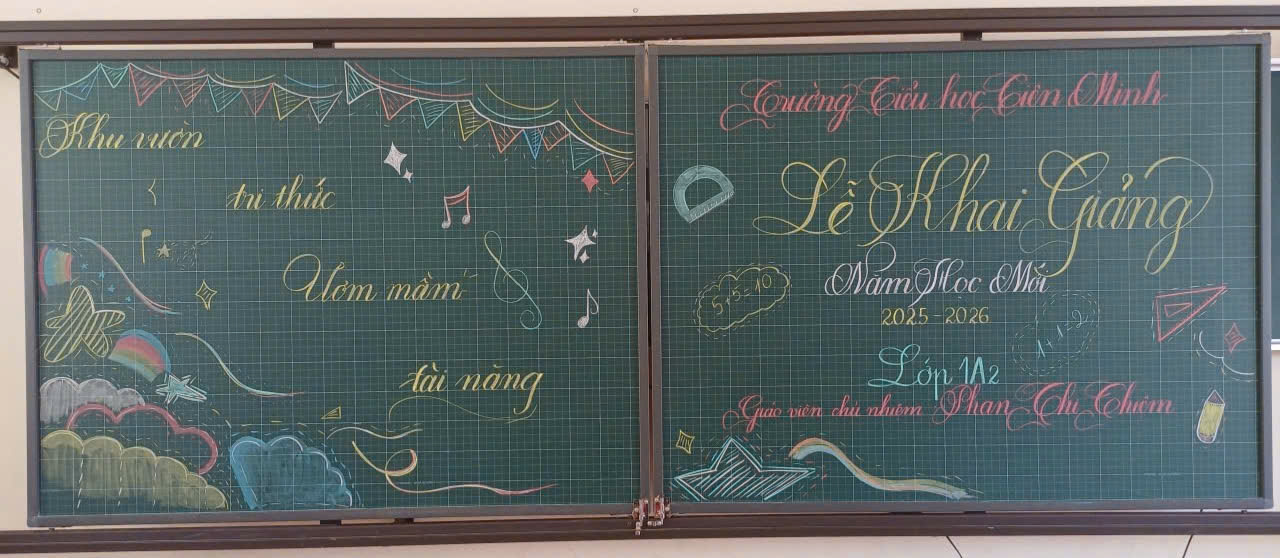 Khu vườn
tri thức
Ươm mầm
tài năng
Trường Tiểu học Tiên Minh
Lễ Khai Giảng
Năm Học Mới
2025-2026
5+5=10
1+1=2
Lớp 1A2
Giáo viên chủ nhiệm Phan Thị Chiêm